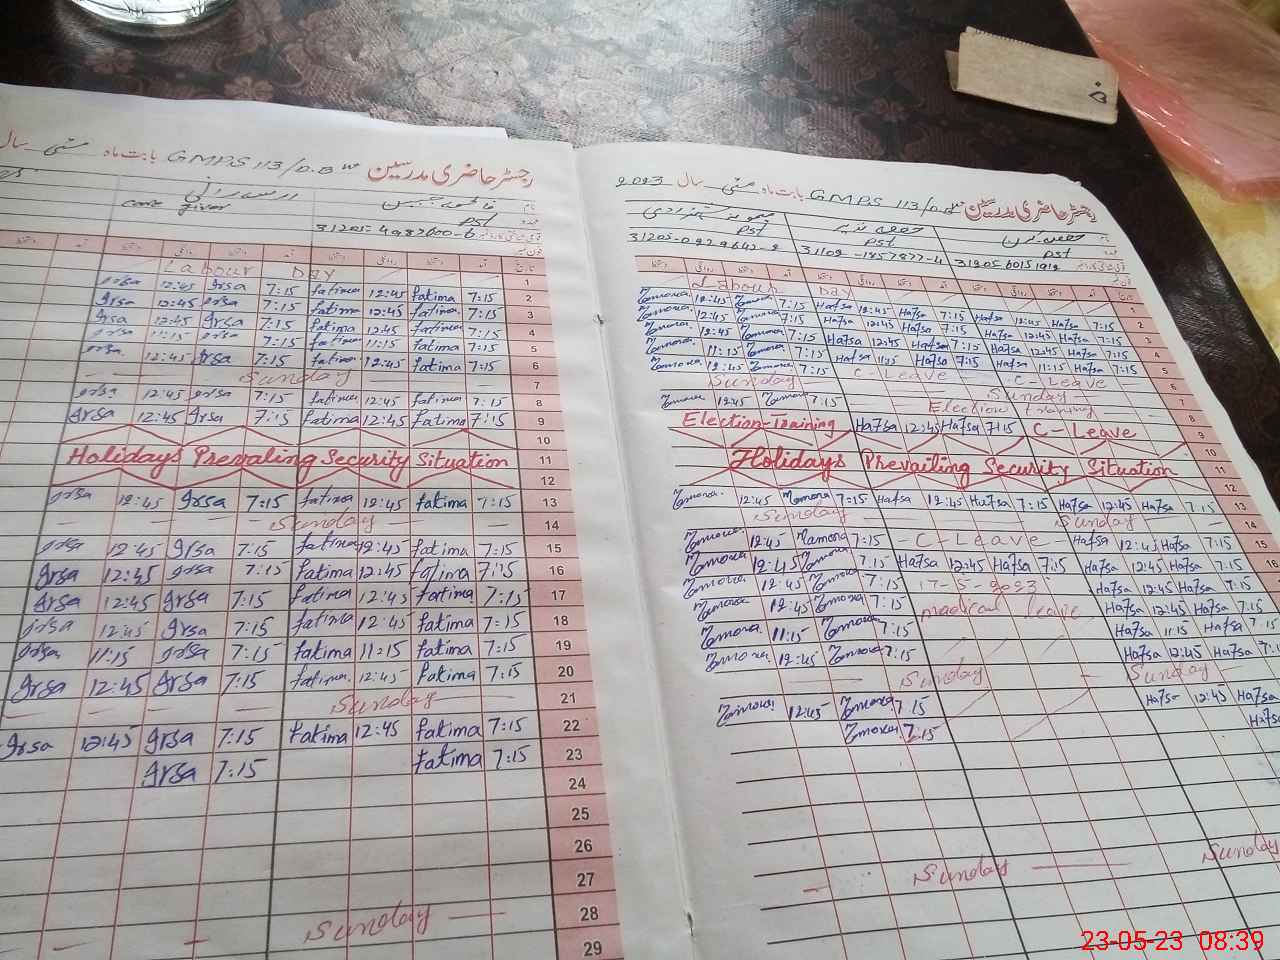 رجسٹر حاضری مدرسین GMPS 113/D.B بابت ماہ مئی سال
care giver
PST
31205-4987600-6
Labour Day 1
grsa 12:45 grsa 7:15 fatima 12:45 fatima 7:15 2
grsa 12:45 grsa 7:15 fatima 12:45 fatima 7:15 3
grsa 12:45 grsa 7:15 fatima 12:45 fatima 7:15 4
grsa 11:15 grsa 7:15 fatima 11:15 fatima 7:15 5
grsa 12:45 grsa 7:15 fatima 12:45 fatima 7:15 6
Sunday 7
grsa 12:45 grsa 7:15 fatima 12:45 fatima 7:15 8
grsa 12:45 grsa 7:15 fatima 12:45 fatima 7:15 9
10
Holidays Prevaling Security Situation 11
12
grsa 12:45 grsa 7:15 fatima 12:45 fatima 7:15 13
Sunday 14
grsa 12:45 grsa 7:15 fatima 12:45 fatima 7:15 15
grsa 12:45 grsa 7:15 fatima 12:45 fatima 7:15 16
grsa 12:45 grsa 7:15 fatima 12:45 fatima 7:15 17
grsa 12:45 grsa 7:15 fatima 12:45 fatima 7:15 18
grsa 11:15 grsa 7:15 fatima 11:15 fatima 7:15 19
grsa 12:45 grsa 7:15 fatima 12:45 fatima 7:15 20
Sunday 21
grsa 12:45 grsa 7:15 fatima 12:45 fatima 7:15 22
grsa 7:15 fatima 7:15 23
24
25
26
27
Sunday 28
29
رجسٹر حاضری مدرسین GMPS 113/D.B بابت ماہ مئی سال 2023
PST PST PST
31205-0929642-2 31102-1857877-4 31205 6015191
Labour Day 1
Zamora 12:45 Zamora 7:15 Hafsa 12:45 Hafsa 7:15 Hafsa 12:45 Hafsa 7:15 2
Zamora 12:45 Zamora 7:15 Hafsa 12:45 Hafsa 7:15 Hafsa 12:45 Hafsa 7:15 3
Zamora 12:45 Zamora 7:15 Hafsa 12:45 Hafsa 7:15 Hafsa 12:45 Hafsa 7:15 4
Zamora 11:15 Zamora 7:15 Hafsa 11:15 Hafsa 7:15 Hafsa 11:15 Hafsa 7:15 5
Zamora 12:45 Zamora 7:15 C-Leave C-Leave 6
Sunday Sunday 7
Zamora 12:45 Zamora 7:15 Election training 8
Election-Training Hafsa 12:45 Hafsa 7:15 C-Leave 9
10
Holidays Prevailing Security Situation 11
12
Zamora 12:45 Zamora 7:15 Hafsa 12:45 Hafsa 7:15 Hafsa 12:45 Hafsa 7:15 13
Sunday Sunday 14
Zamora 12:45 Zamora 7:15 -C-Leave- Hafsa 12:45 Hafsa 7:15 15
Zamora 12:45 Zamora 7:15 Hafsa 12:45 Hafsa 7:15 Hafsa 12:45 Hafsa 7:15 16
Zamora 12:45 Zamora 7:15 17-5-2023 Hafsa 12:45 Hafsa 7:15
Zamora 12:45 Zamora 7:15 madical leave Hafsa 12:45 Hafsa 7:15
Zamora 11:15 Zamora 7:15 Hafsa 11:15 Hafsa 7:15
Zamora 12:45 Zamora 7:15 Hafsa 12:45 Hafsa
Sunday Sunday
Zamora 12:45 Zamora 7:15 Hafsa 12:45 Hafsa
Zamora 7:15
Sunday Sunday
23-05-23 08:39